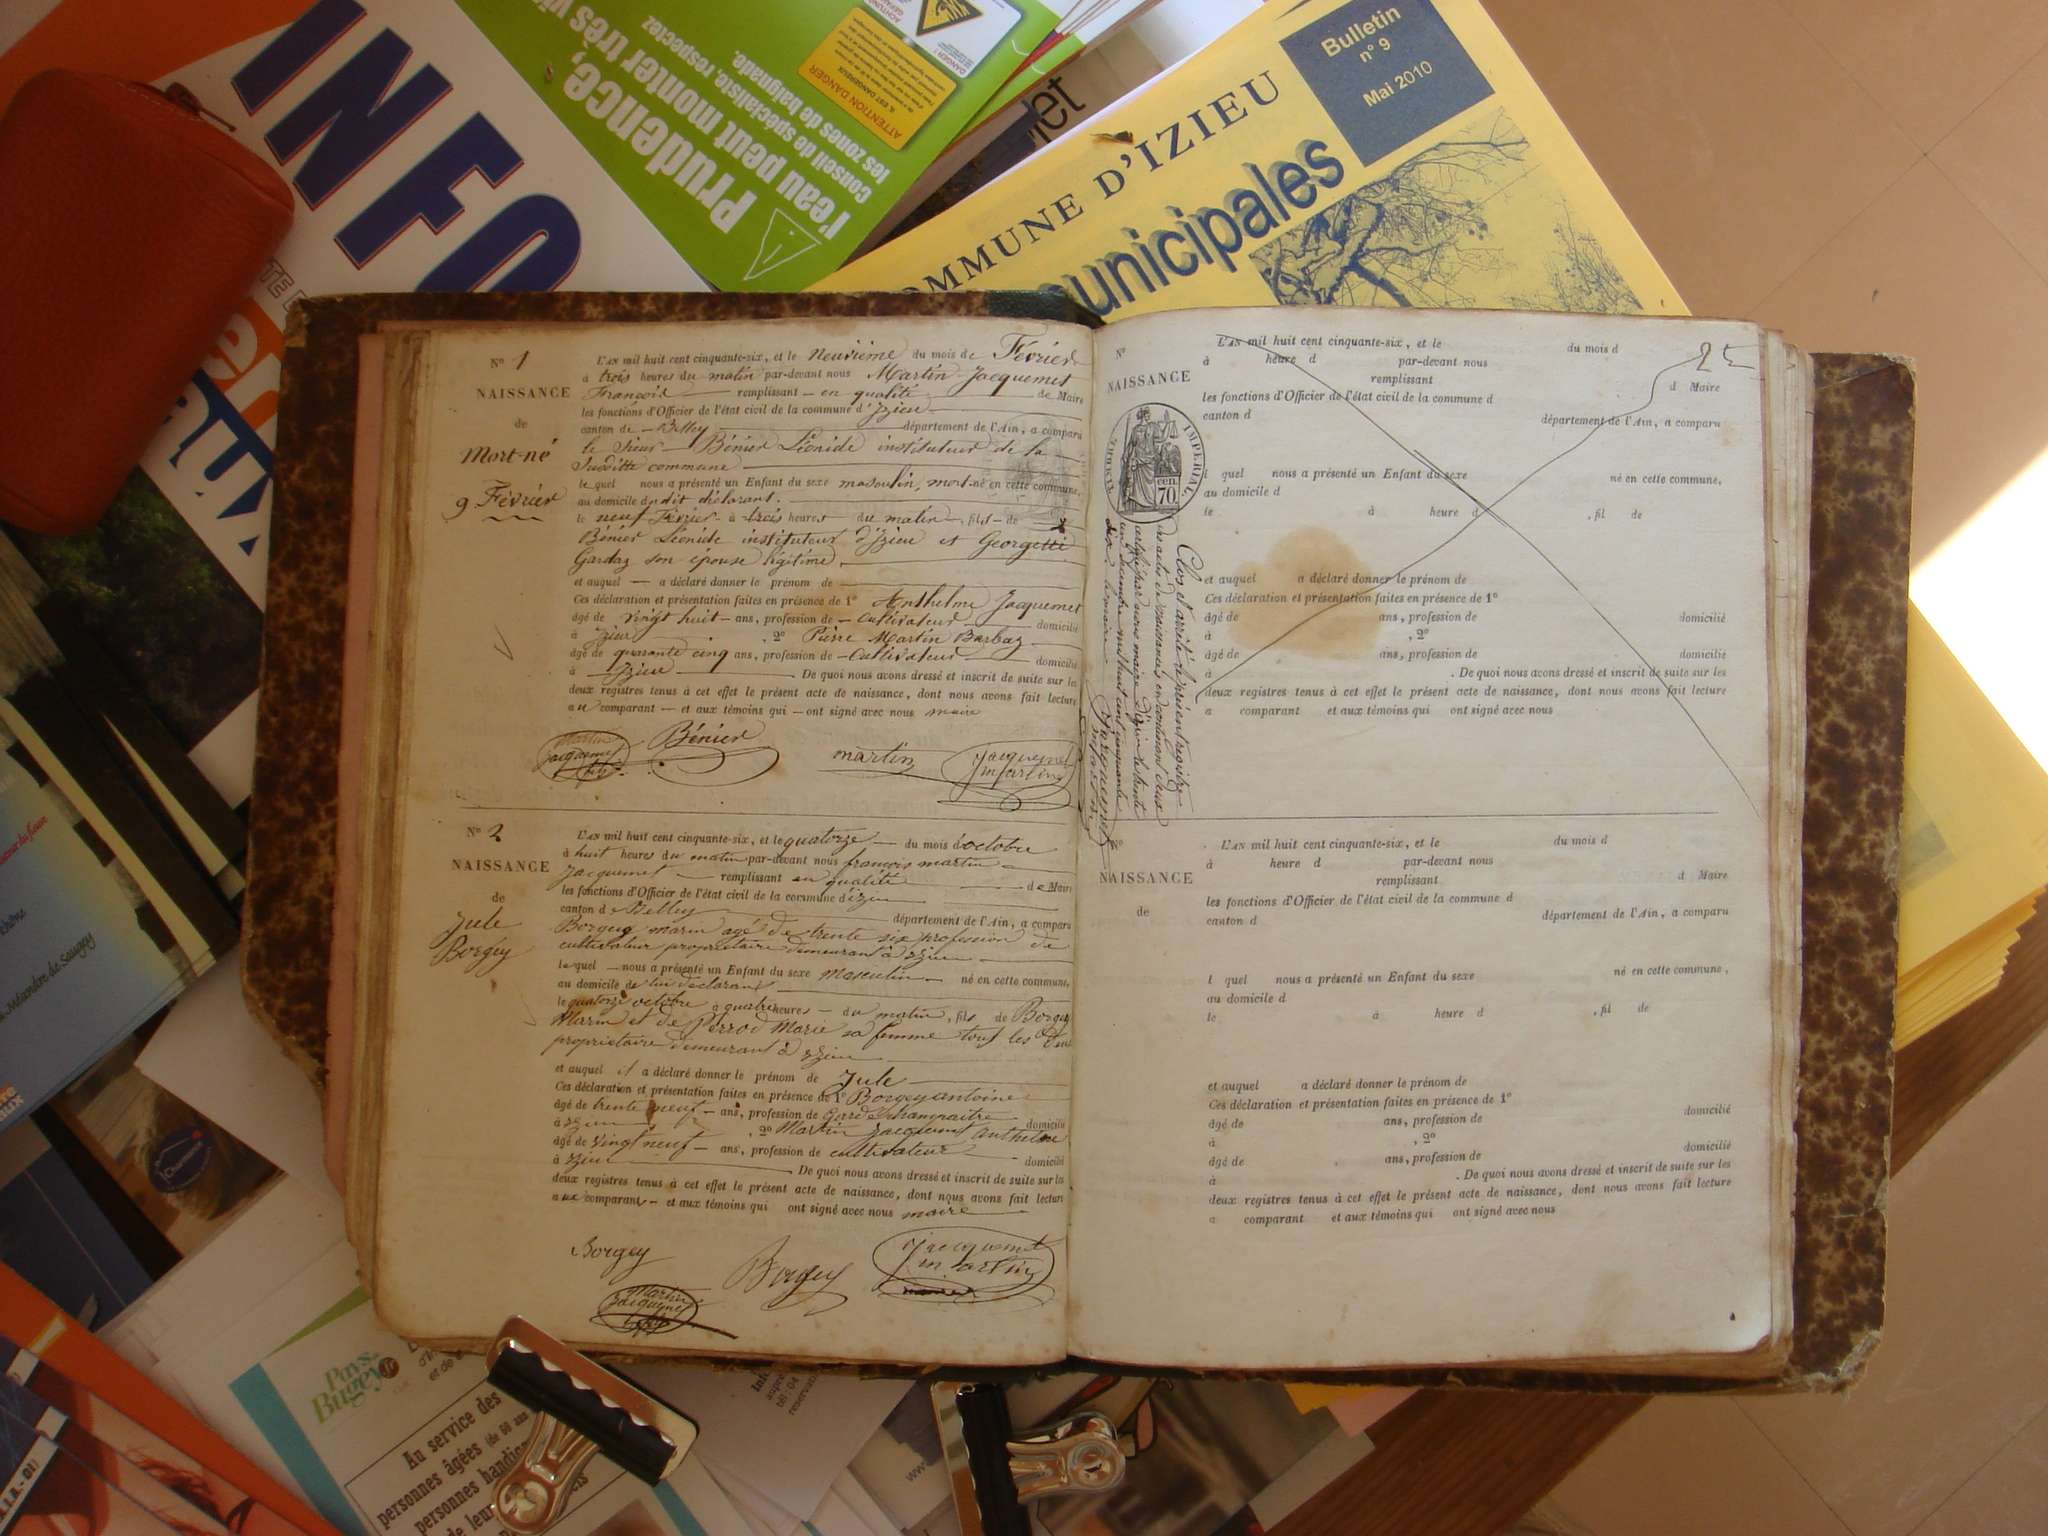 INFO
Prudence,
l'eau peut monter très vi
conseil de spécialiste, respectez
les zones de baignade.
ATTENTION DANGER
DANGER!
COMMUNE D'IZIEU
unicipales
Bulletin
n° 9
Mai 2010
N° 1
NAISSANCE
de
Mort-né
9 Février
L'AN mil huit cent cinquante-six, et le Neuvième du mois de Février
à trois heures du matin par-devant nous Martin Jacquemet
François remplissant en qualité de Maire
les fonctions d'Officier de l'état civil de la commune d'Izieu
canton de Belley département de l'Ain, a comparu
le Sieur Bénier Léonide instituteur de la
susditte commune
lequel nous a présenté un Enfant du sexe masculin, mort-né en cette commune,
au domicile dudit déclarant.
le neuf Février à trois heures du matin, fils de
Bénier Léonide instituteur d'Izieu et Georgette
Gardaz son épouse légitime.
et auquel a déclaré donner le prénom de
Ces déclaration et présentation faites en présence de 1° Anthelme Jacquemet
âgé de vingt huit ans, profession de Cultivateur domicilié
à Izieu , 2° Pierre Martin Barbaz
âgé de quarante cinq ans, profession de Cultivateur domicilié
à Izieu . De quoi nous avons dressé et inscrit de suite sur les
deux registres tenus à cet effet le présent acte de naissance, dont nous avons fait lecture
au comparant et aux témoins qui ont signé avec nous maire
Martin
Jacquemet
Bénier
martin
Jacquemet
martin
N° 2
NAISSANCE
de
Jule
Borgey
L'AN mil huit cent cinquante-six, et le quatorze du mois d'octobre
à huit heures du matin par-devant nous françois martin
Jacquemet remplissant en qualité de Maire
les fonctions d'Officier de l'état civil de la commune d'izieu
canton d Belley département de l'Ain, a comparu
Borgey marin agé de trente six profession de
cultivateur propriétaire demeurant à izieu
lequel nous a présenté un Enfant du sexe masculin né en cette commune,
au domicile de lui déclarant
le quatorze octobre à quatre heures du matin, fils de Borgey
Marin et de Perrod Marie sa femme tout les deux
propriétaire demeurant à izieu
et auquel il a déclaré donner le prénom de Jule
Ces déclaration et présentation faites en présence de 1° Borgey antoine
âgé de trente neuf ans, profession de Garde Champaitre domicilié
à izieu , 2° Martin Jacquemet anthelme
âgé de vingt neuf ans, profession de cultivateur domicilié
à izieu . De quoi nous avons dressé et inscrit de suite sur les
deux registres tenus à cet effet le présent acte de naissance, dont nous avons fait lecture
aux comparant et aux témoins qui ont signé avec nous maire
Borgey
Borgey
Jacquemet
martin
Martin
Jacquemet
25
N°
NAISSANCE
TIMBRE IMPERIAL
70 cen.
Clos et arrêté le présent registre
des actes de naissances en contenant deux
L'AN mil huit cent cinquante-six, et le du mois d
à heure d par-devant nous
remplissant d Maire
les fonctions d'Officier de l'état civil de la commune d
canton d département de l'Ain, a comparu
l quel nous a présenté un Enfant du sexe né en cette commune,
au domicile d
le à heure d , fil de
et auquel a déclaré donner le prénom de
Ces déclaration et présentation faites en présence de 1°
âgé de ans, profession de domicilié
à , 2°
âgé de ans, profession de domicilié
à . De quoi nous avons dressé et inscrit de suite sur les
deux registres tenus à cet effet le présent acte de naissance, dont nous avons fait lecture
a comparant et aux témoins qui ont signé avec nous
NAISSANCE
de
L'AN mil huit cent cinquante-six, et le du mois d
à heure d par-devant nous
remplissant d Maire
les fonctions d'Officier de l'état civil de la commune d
canton d département de l'Ain, a comparu
l quel nous a présenté un Enfant du sexe né en cette commune,
au domicile d
le à heure d , fil de
et auquel a déclaré donner le prénom de
Ces déclaration et présentation faites en présence de 1°
âgé de ans, profession de domicilié
à , 2°
âgé de ans, profession de domicilié
à . De quoi nous avons dressé et inscrit de suite sur les
deux registres tenus à cet effet le présent acte de naissance, dont nous avons fait lecture
a comparant et aux témoins qui ont signé avec nous
Pays
Bugey
Au service des
personnes âgées (de 60 ans
personnes handic
de leur